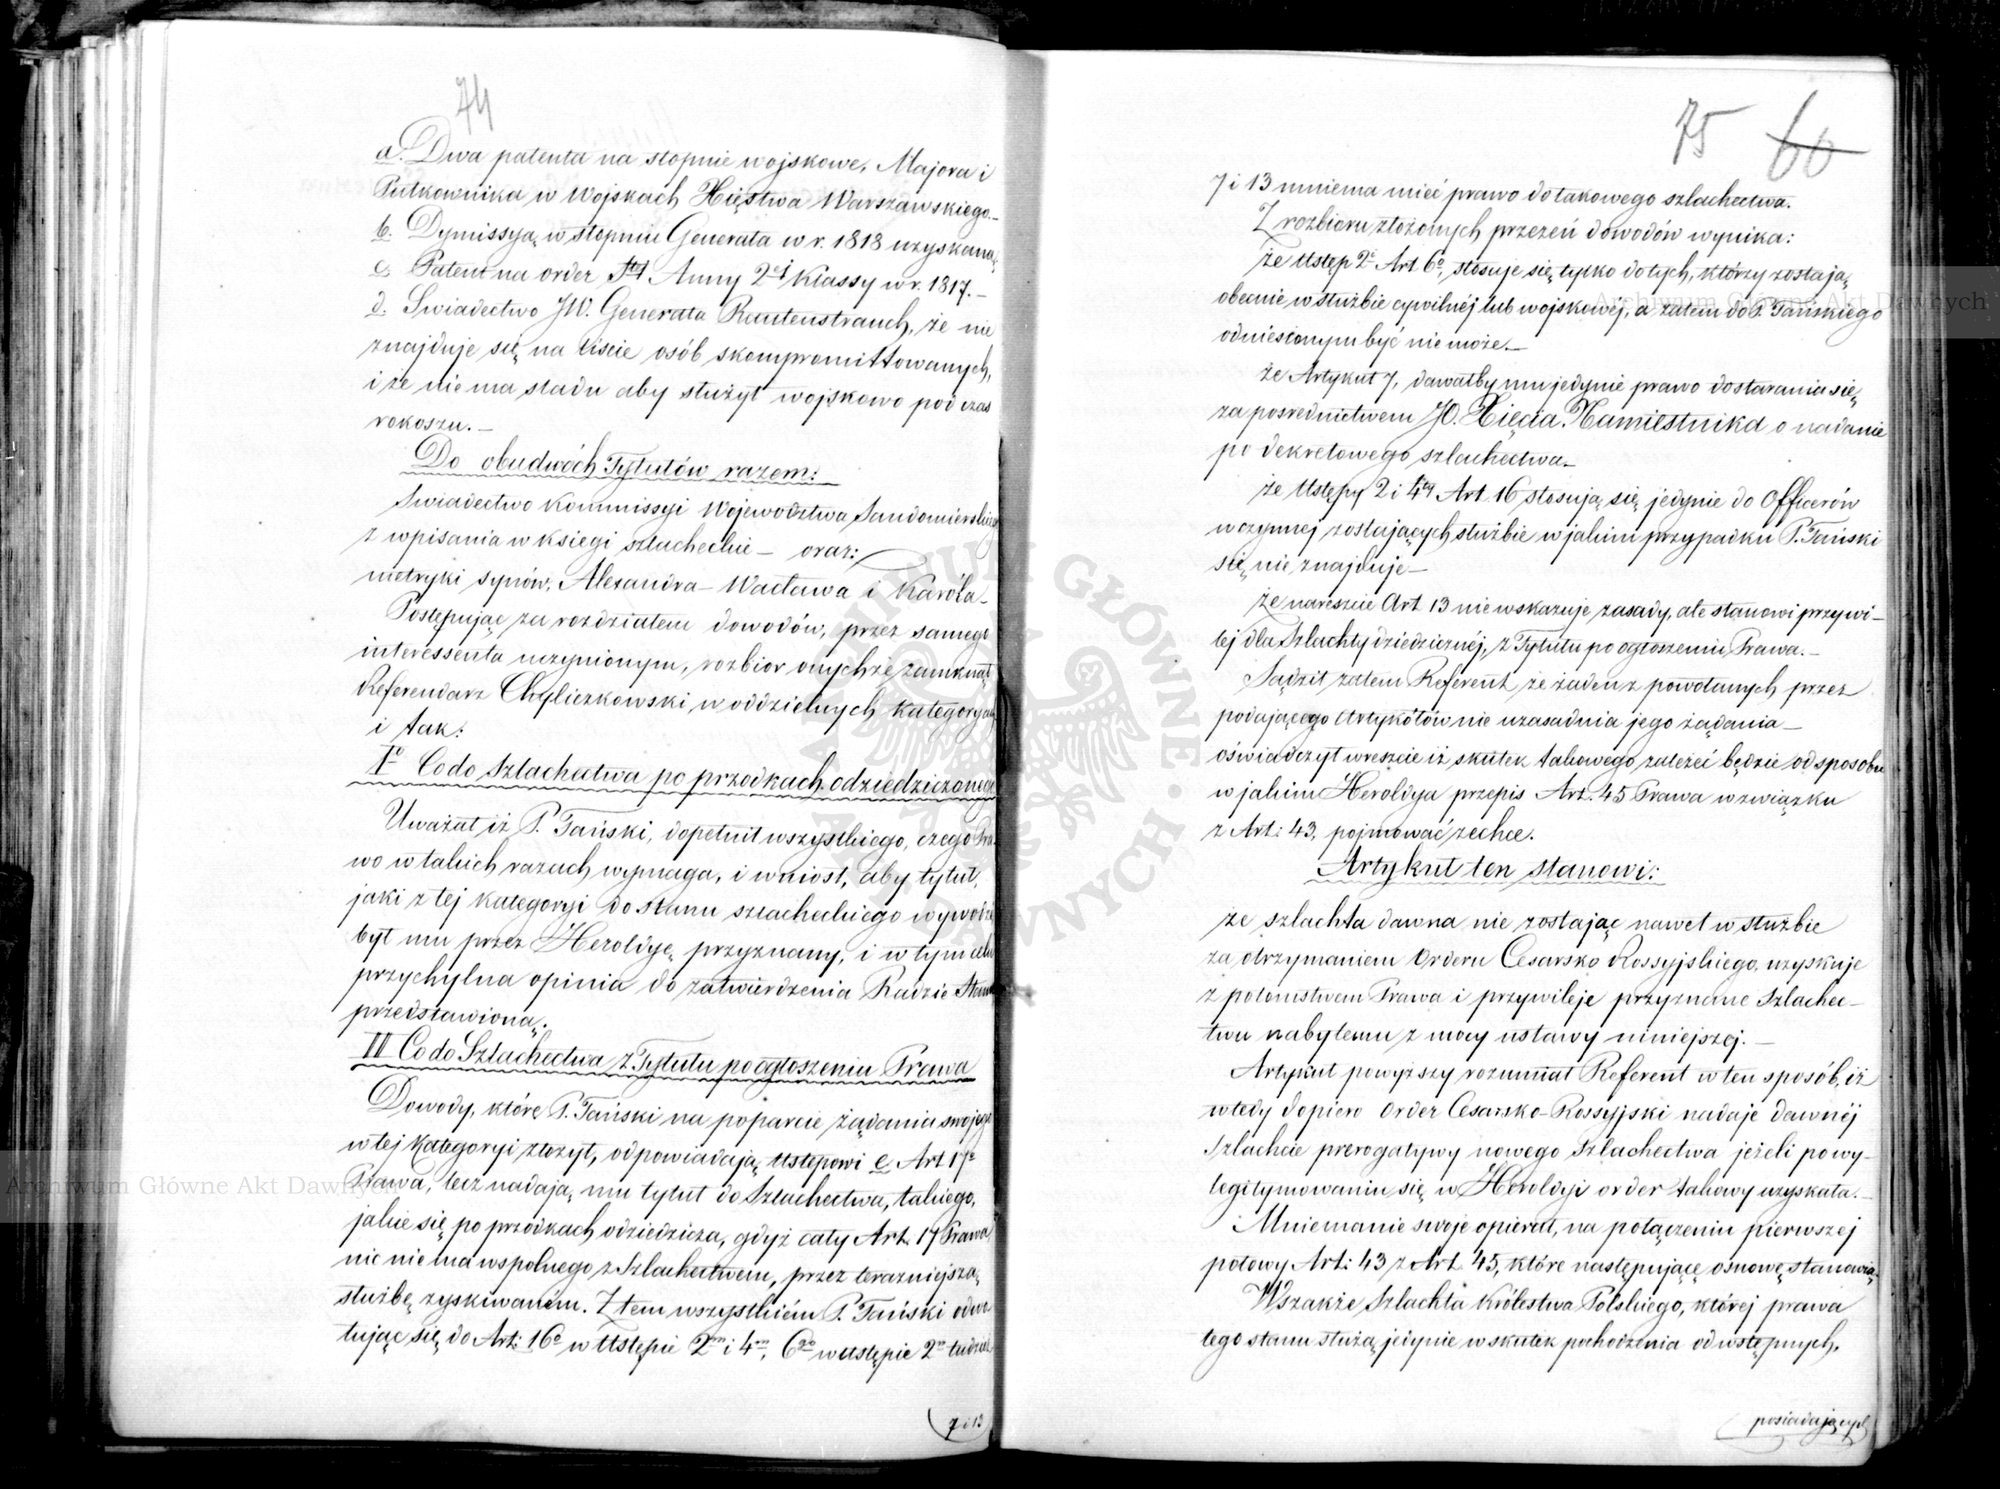 74
a. Dwa patenta na stopnie wojskowe, Majora i
Pułkownika w Wojskach Xięstwa Warszawskiego.—
b. Dymissyą w stopniu Generała w r. 1818 uzyskaną
c. Patent na order Stej Anny 2ej Klassy w r. 1817.—
d. Swiadectwo JW. Generała Rautenstrauch, że nie
znajduje się na liście osób skompromittowanych,
i że nie ma sladu aby służył wojskowo podczas
rokoszu.—
Do obudwóch Tytułów razem:
Swiadectwo Kommissyi Województwa Sandomierskiego
z wpisania w księgi szlacheckie — oraz:
metryki synów, Alexandra — Wacława i Karóla—
Postępując za rozdziałem dowodów, przez samego
interessenta uczynionym, rozbior onychże zamknął
Referendarz Chyliczkowski, w oddzielnych kategoryach
i tak:
Io Co do Szlachectwa po przodkach odziedziczonego
Uważał iż P. Tański, dopełnił wszystkiego, czego Pra-
wo w takich razach wymaga, i wniosł, aby tytuł,
jaki z tej kategoryi do stanu szlacheckiego wywodzi
był mu przez Heroldyę przyznany, i w tym celu
przychylna opinia do zatwierdzenia Radzie Stanu
przedstawioną.
II Co do Szlachectwa z Tytułu po ogłoszeniu Prawa
Dowody, które P. Tański na poparcie żądania swojego
w tej kategoryi złożył, odpowiadają Ustępowi e Art 17o
Prawa, lecz nadają mu tytuł do Szlachectwa, takiego,
jakie się po przodkach odziedzicza, gdyż cały Art. 17 Prawa
nic nie ma wspolnego z Szlachectwem, przez teraźniejszą
służbę zyskiwaném. Z tem wszystkiém P. Tański odwo-
łując się do Art: 16o w Ustępie 2m i 4m, 6go w ustępie 2m tudzież
7 i 13
75 60
7 i 13 mniema mieć prawo do takowego szlachectwa.
Z rozbioru złożonych przezeń dowodów wynika:
że Ustęp 2i Art 6o, stosuje się tylko do tych, którzy zostają
obecnie w służbie cywilnéj lub wojskowéj, a zatem do P. Tańskiego
odniesionym być nie może.—
że Artykuł 7, dawałby mu jedynie prawo do starania się
za pośrednictwem JO. Xięcia Namiestnika o nadanie
po dekretowego szlachectwa.—
że Ustępy 2 i 4ty Art 16 stosują się jedynie do Officerów
w czynnej zostających służbie w jakim przypadku P. Tański
się nie znajduje—
że nareszcie Art 13 nie wskazuje zasady, ale stanowi przywi-
lej dla Szlachty dziedzicznéj, z Tytułu po ogłoszeniu Prawa.—
Sądził zatem Referent że żaden z powołanych przez
podającego Artykółów nie uzasadnia jego żądania—
oświadczył wreszcie iż skutek takowego zależeć będzie od sposobu
w jakim Heroldya przepis Art. 45 Prawa w związku
z Art: 43, pojmować zechce.
Artykuł ten stanowi:
że szlachta dawna nie zostając nawet w służbie
za otrzymaniem Orderu Cesarsko Rossyjskiego, uzyskuje
z potomstwem Prawa i przywileje przyznane Szlachec-
twu nabytemu z mocy ustawy niniejszej.—
Artykuł powyższy rozumiał Referent w ten sposób, iż
wtedy dopiero Order Cesarsko-Rossyjski nadaje dawnéj
Szlachcie prerogatywy nowego Szlachectwa jeżeli po wy-
legitymowaniu się w Heroldyi order takowy uzyskała.—
Mniemanie swoje opierał, na połączeniu pierwszej
połowy Art: 43 z Art 45, które następującę osnowę stanowią
Wszakże Szlachta Królestwa Polskiego, któréj prawa
tego stanu służą jedynie w skutek pochodzenia od wstępnych,
posiadających
Archiwum Główne Akt Dawnych
Archiwum Główne Akt Dawnych
ARCHIWUM GŁÓWNE AKT DAWNYCH